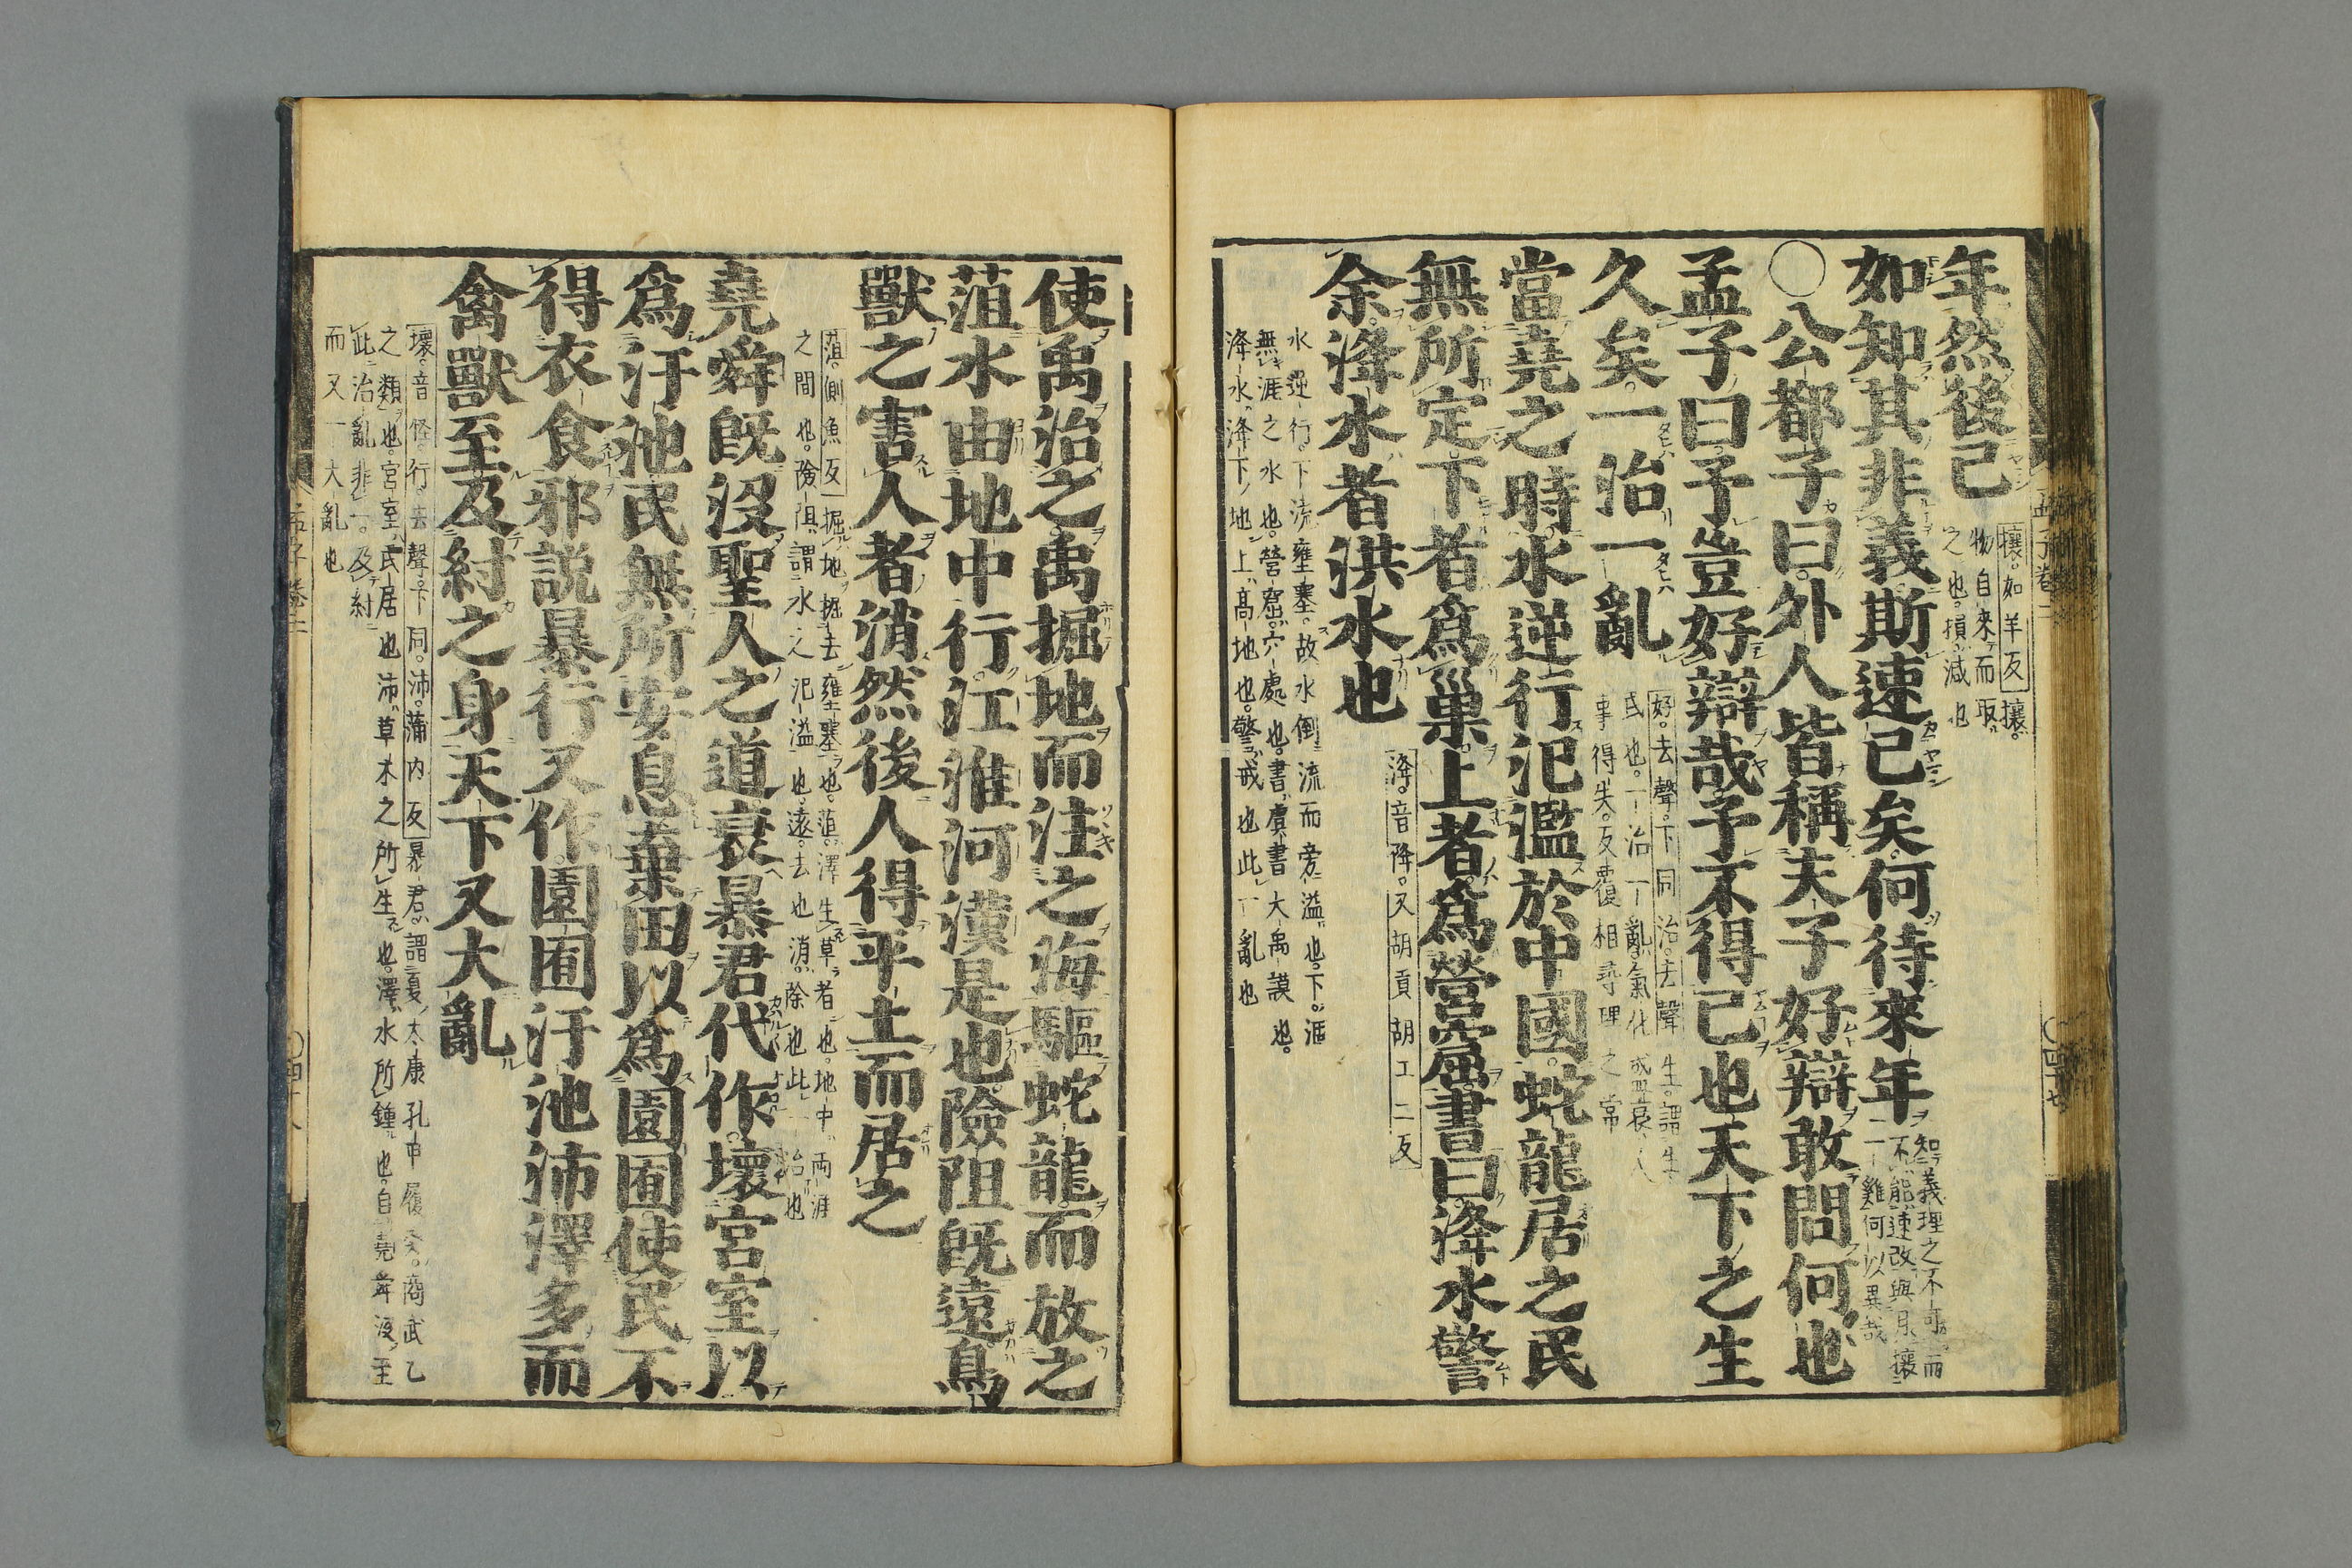 年然後已
攘如羊反攘
物自來而取
之也損減也
如知其非義斯速已矣何待來年
知義理之不可而
不能速改與月攘
一雞何以異哉
○公都子曰外人皆稱夫子好辯敢問何也
孟子曰予豈好辯哉予不得已也天下之生
久矣一治一亂
好去聲下同治去聲生謂生
民也一治一亂氣化盛衰人
事得失反覆相尋理之常
當堯之時水逆行氾濫於中國蛇龍居之民
無所定下者爲巢上者爲營窟書曰洚水警
余洚水者洪水也
洚音降又胡貢胡工二反
水逆行下流壅塞故水倒流而旁溢也下
無涯之水也營窟穴處也書虞書大禹謨也
洚水洚下地上高地也警戒也此一亂也
使禹治之禹掘地而注之海驅蛇龍而放之
菹水由地中行江淮河漢是也險阻既遠鳥
獸之害人者消然後人得平土而居之
菹側魚反掘地掘去壅塞也菹澤生草者也地中兩涯
之間也險阻謂水之氾溢也遠去也消除也此一治也
堯舜既沒聖人之道衰暴君代作壞宮室以
爲汙池民無所安息棄田以爲園囿使民不
得衣食邪說暴行又作園囿汙池沛澤多而
禽獸至及紂之身天下又大亂
壞音怪行去聲下同沛蒲內反暴君謂夏太康孔甲履癸商武乙
之類也宮室民居也沛草木之所生也澤水所鍾也自堯舜沒至
此治亂非一及紂
而又一大亂也